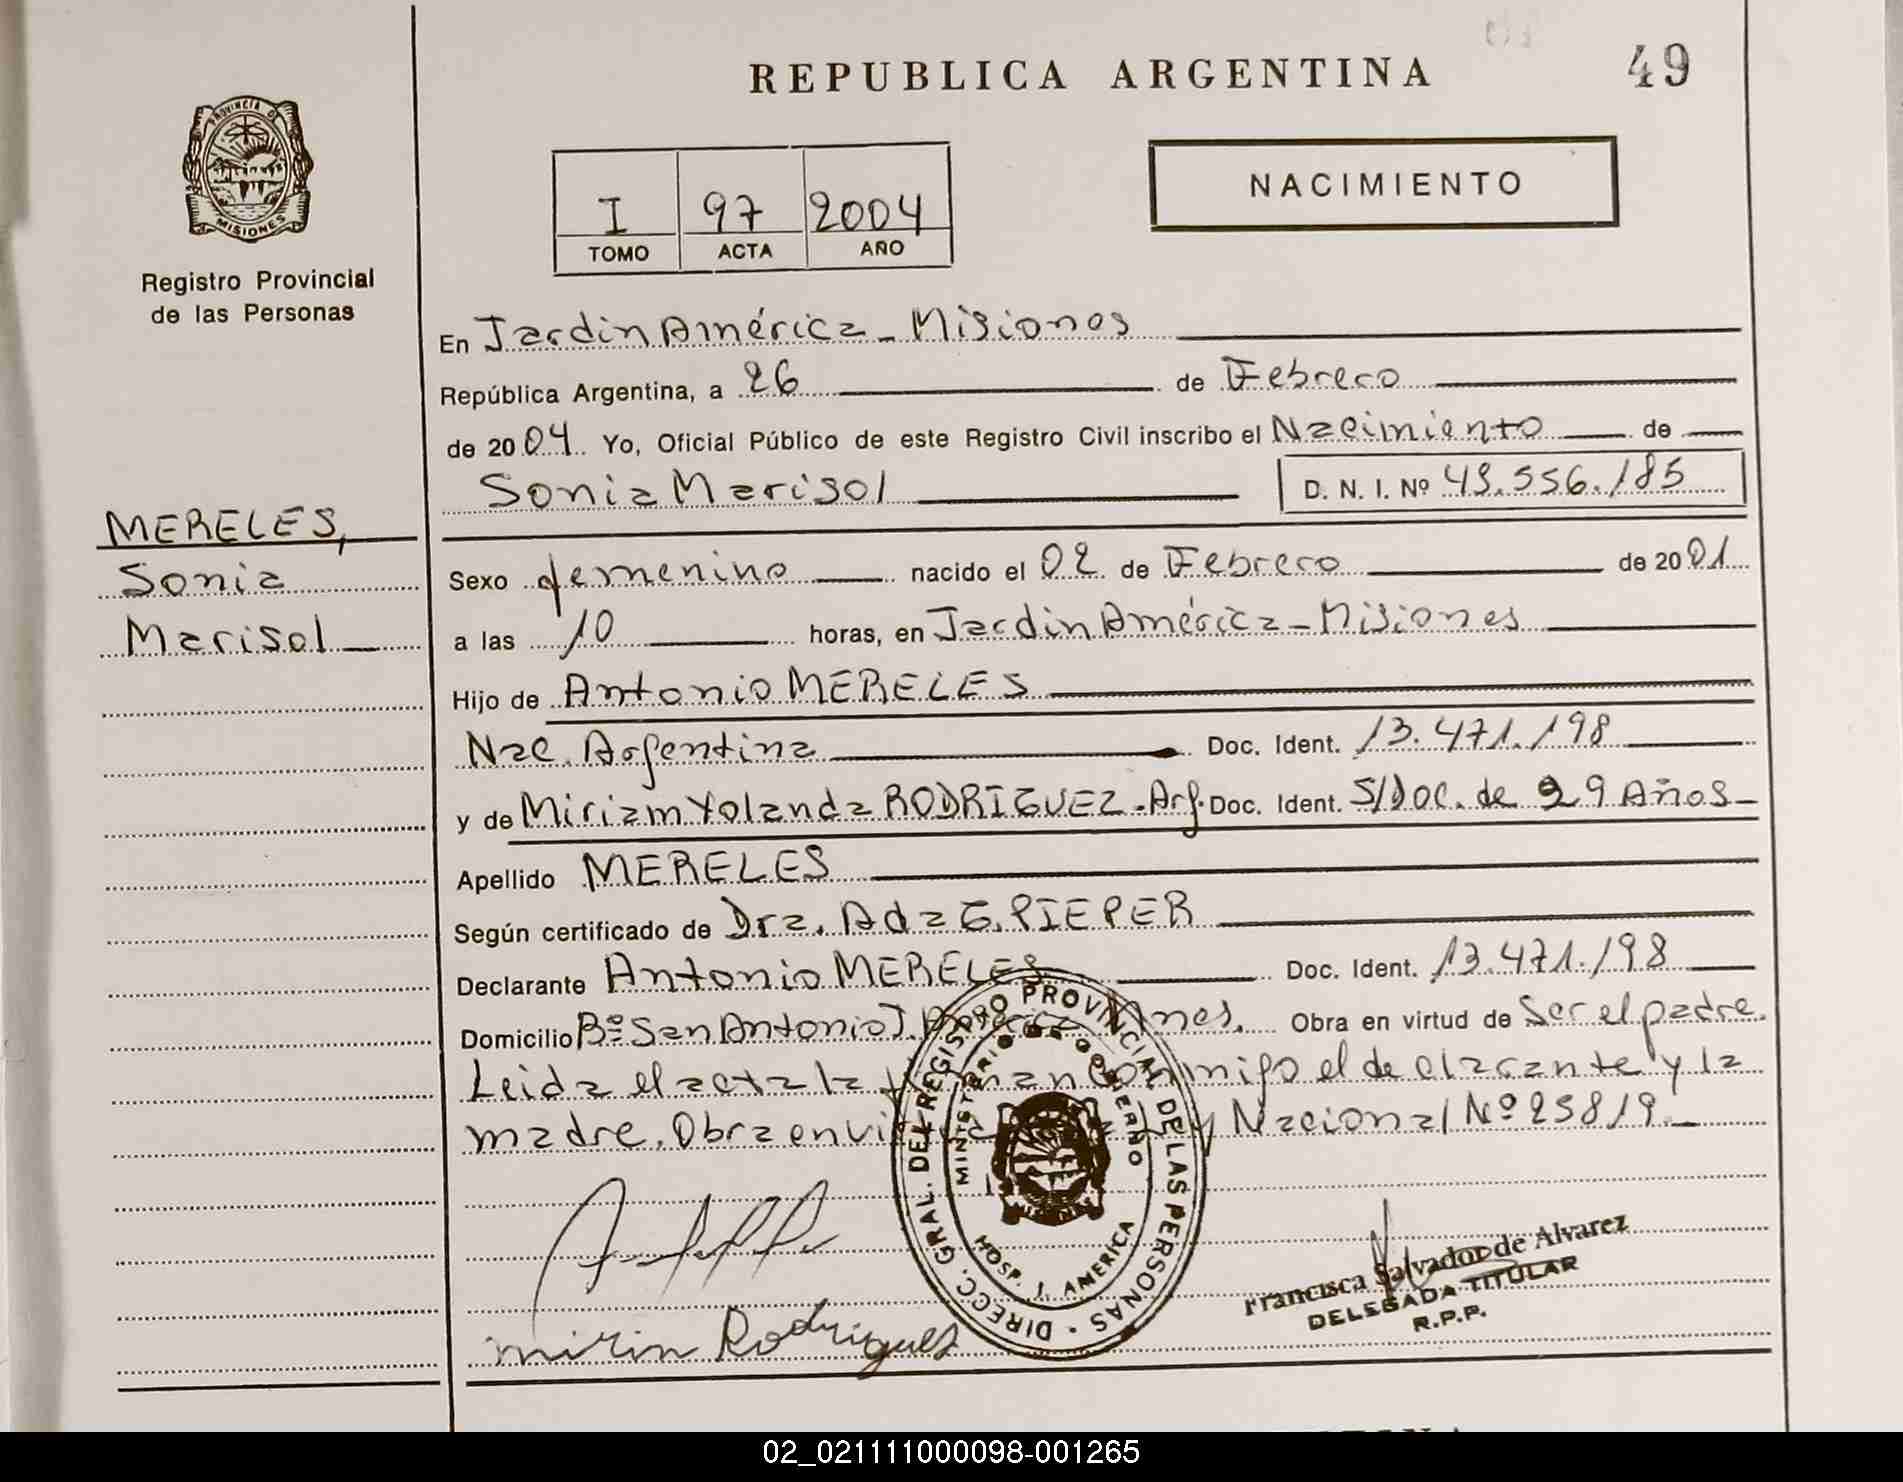 REPUBLICA ARGENTINA
49
PROVINCIA DE
MISIONES
Registro Provincial
de las Personas
I 97 2004
TOMO ACTA AÑO
NACIMIENTO
En Jardin América - Misiones
República Argentina, a 26 de Febrero
de 2004. Yo, Oficial Público de este Registro Civil inscribo el Nacimiento de
Sonia Marisol
D. N. I. Nº 43.556.185
MERELES,
Sonia
Marisol
Sexo femenino nacido el 02 de Febrero de 2001
a las 10 horas, en Jardin América - Misiones
Hijo de Antonio MERELES
Nac. Argentina Doc. Ident. 13.471.198
y de Miriam Yolanda RODRIGUEZ - Arg. Doc. Ident. S/Doc. de 29 Años -
Apellido MERELES
Según certificado de Dra. Ada G. PIEPER
Declarante Antonio MERELES Doc. Ident. 13.471.198
Domicilio Bº San Antonio J. América Mnes. Obra en virtud de Ser el padre.
Leida el acta la firman conmigo el declarante y la
madre. Obra en Ley Nacional Nº 25819. -
DIRECC. GRAL. DEL REGISTRO PROVINCIAL DE LAS PERSONAS
MINISTERIO DE GOBIERNO
MISIONES
HOSP. J. AMERICA
mirin Rodrigues
Francisca Salvador de Alvarez
DELEGADA TITULAR
R.P.P.
02_021111000098-001265